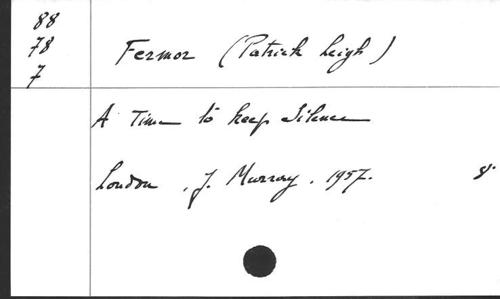 88
78
7
Fermor (Patrick Leigh)
A Time to keep Silence
London, J. Murray. 1957. 8°